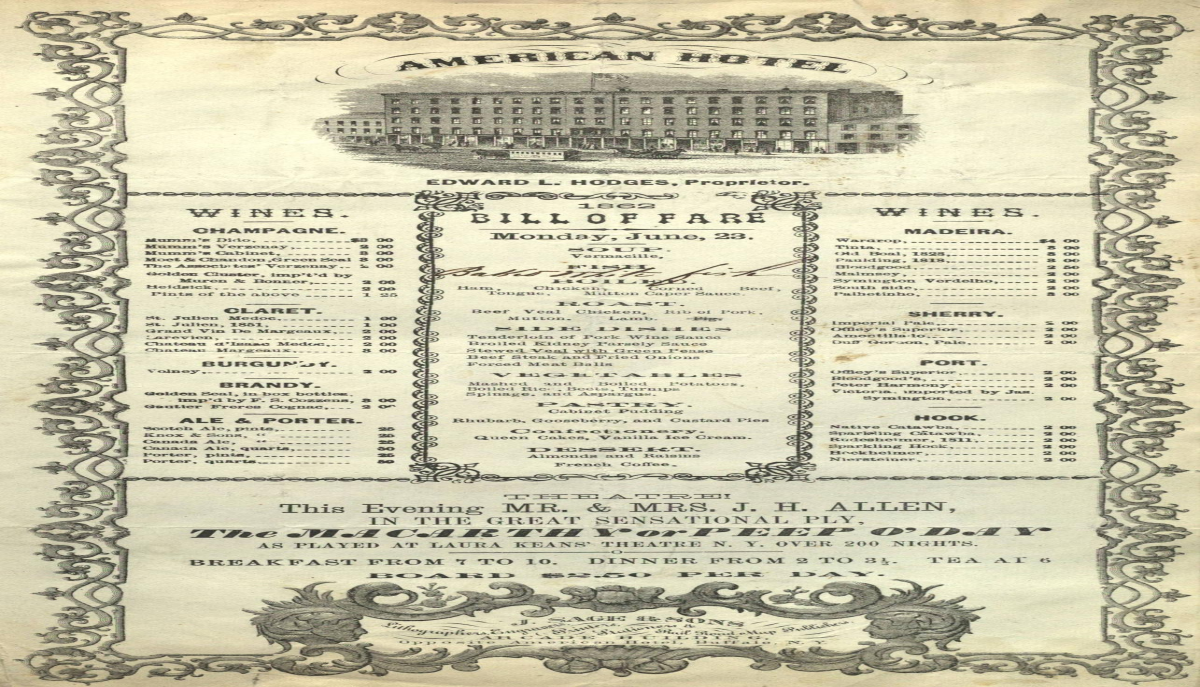 AMERICAN HOTEL
EDWARD L. HODGES, Proprietor.
WINES.
CHAMPAGNE.
Mumm's Dido,
Mumm's Verzenay, 2 00
Mumm's Cabinet,
Moet & Chandon, Green Seal
The Associates' Verzenay,
Golden Cluster, imp't'd by
Muren & Bonner,
Heidsick 2 00
Pints of the above 1 25
CLARET.
St. Julien Medoc, 1 00
St. Julien, 1851, 1 00
Grand Vin De Margeaux, 2 00
Larevien, 2 00
Chateau d'Issac Medoc, 2 00
Chateau Margeaux, 3 00
BURGUNDY.
Volney, 2 00
BRANDY.
Golden Seal, in box bottles,
imp'd by F. S. Cozzens,
Gautier Freres Cognac,
ALE & PORTER.
Scotch Ale, pints, 25
Knox & Sons, 25
Canada Ale, 25
Canada Ale, quarts, 50
Porter, pints, 25
Porter, quarts 50
1862
BILL OF FARE
Monday, June, 23.
SOUP.
Vermacille,
FISH
Baked Fish
BOILED.
Ham, Chicken, Corned Beef,
Tongue, Mutton Caper Sauce.
ROAST
Beef Veal Chicken, Rib of Pork,
Mutton. Lamb.
SIDE DISHES
Tenderloin of Pork Wine Sauce
Broiled Kidney Parsely Sauce
Stewed Veal with Green Pease
Beef Steak and Fried Onions
Forced Meat Balls
VEGETABLES
Mashed and Boiled Potatoes,
Boiled Rice, Beets, Turnips,
Spinage, and Asparagus.
PASTRY.
Cabinet Pudding
Rhubarb, Gooseberry, and Custard Pies
Confectionery.
Queen Cakes, Vanilla Ice Cream.
DESSERT.
Almonds and Raisins
French Coffee.
WINES.
MADEIRA.
Wardrop, $4 00
Tinta,
Old Boal, 1828,
Panding, 1818,
Bloodgood, 2 50
Malmsey
Symington Verdelho,
South side,
Palhetinho,
SHERRY.
Imperial Pale,
Offley's Superior,
Amontillado,
Duff Gordon, Pale,
PORT.
Offley's Superior 2 00
Bloodgood's, 2 00
Peter Harmony, 2 00
Victoria, imported by Jas.
Symington, 2 00
HOCK.
Native Catawba, 2 00
Sparkling Catawba, 2 00
Rudesheimer, 1811, 2 00
Sparkling Hock, 2 00
Hockheimer, 2 00
Niersteiner, 2 00
THEATRE!
This Evening MR. & MRS. J. H. ALLEN,
IN THE GREAT SENSATIONAL PLY,
The MACARTHY or PEEP O'DAY
AS PLAYED AT LAURA KEANS' THEATRE N. Y. OVER 200 NIGHTS.
BREAKFAST FROM 7 TO 10. DINNER FROM 2 TO 3½. TEA AT 6
BOARD $2.50 PER DAY.
J. SAGE & SONS
Lithographers,